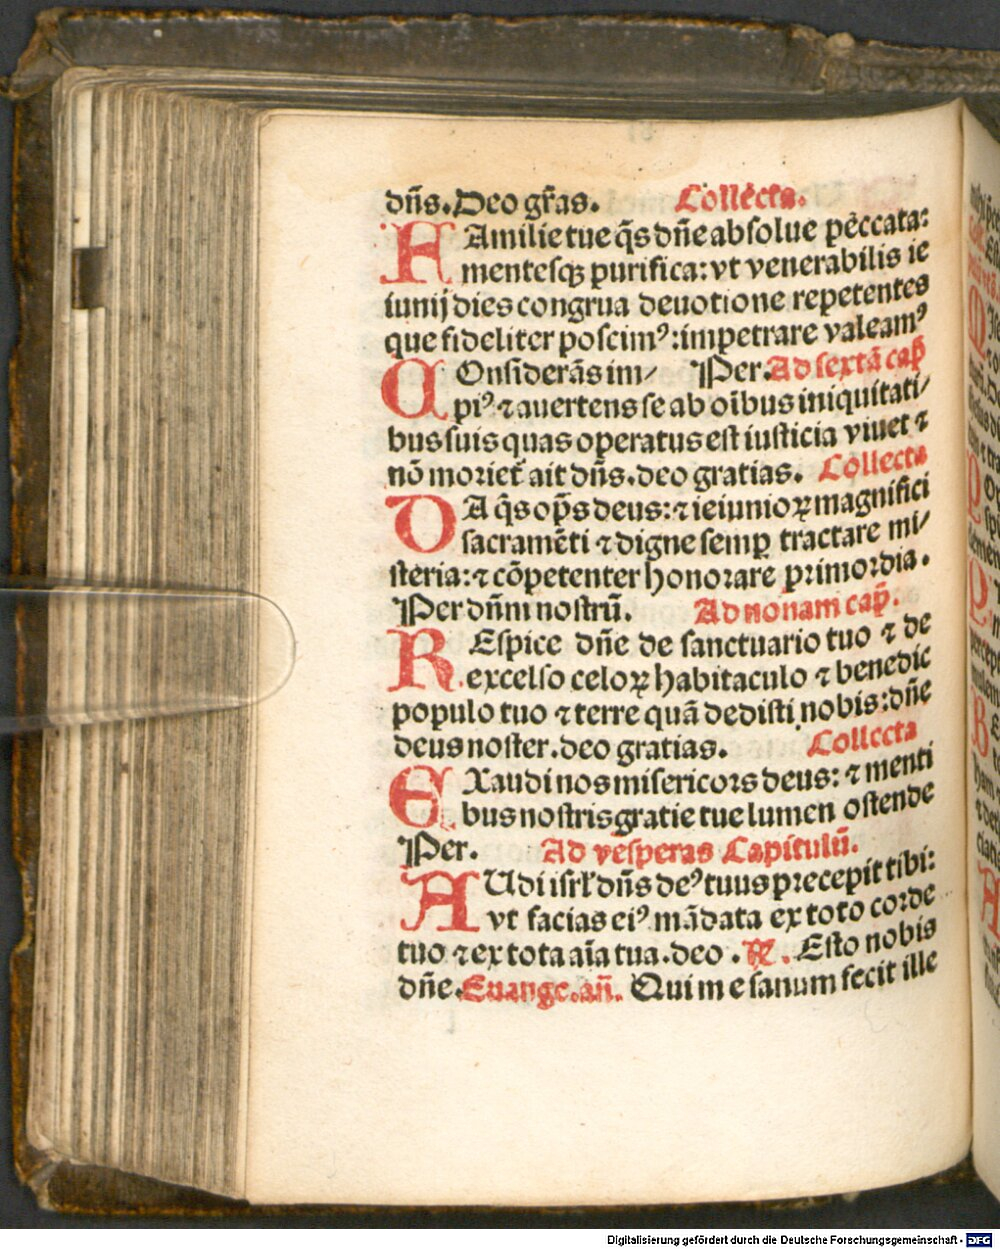 dñs. Deo grãs. Collecta.
FAmilie tue q̃s dñe absolue peccata:
mentesqꝫ purifica: vt venerabilis ie
iunij dies congrua deuotione repetentes
que fideliter poscimꝰ: impetrare valeamꝰ
Per. Ad sextã cap̃
COnsiderãs im/
piꝰ ⁊ auertens se ab oĩbus iniquitati/
bus suis quas operatus est iusticia viuet ⁊
nõ moriet̃ ait dñs. deo gratias. Collecta
DA q̃s op̃s deus: ⁊ ieiunioꝝ magnifici
sacramẽti ⁊ digne semꝑ tractare mi/
steria: ⁊ cõpetenter honorare primordia.
Per dñm nostrũ. Ad nonam cap̃.
REspice dñe de sanctuario tuo ⁊ de
excelso celoꝝ habitaculo ⁊ benedic
populo tuo ⁊ terre quã dedisti nobis: dñe
deus noster. deo gratias. Collecta
EXaudi nos misericors deus: ⁊ menti
bus nostris gratie tue lumen ostende
Per. Ad vesperas Capitulũ.
AUdi isrl̃ dñs deꝰ tuus precepit tibi:
vt facias eiꝰ mãdata ex toto corde
tuo ⁊ ex tota aĩa tua. deo. ℟. Esto nobis
dñe. Euange. añ. Qui me sanum fecit ille
Digitalisierung gefördert durch die Deutsche Forschungsgemeinschaft - DFG